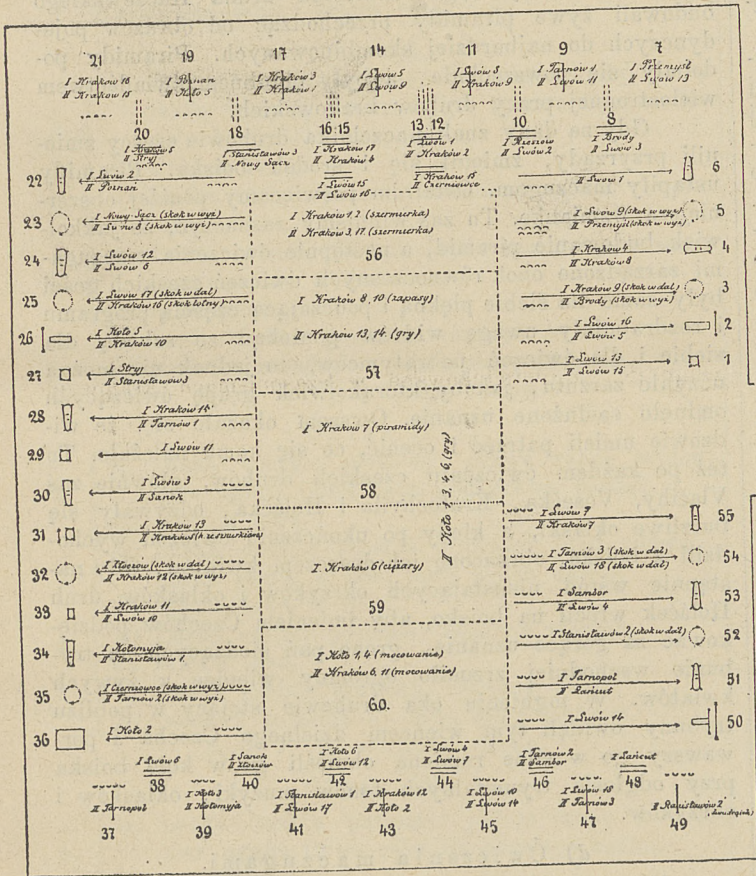 21 19 17 14 11 9 7
I Kraków 18
II Kraków 15
I Poznań
II Koło 5
I Kraków 3
II Kraków 1
I Lwów 5
II Lwów 9
I Lwów 8
II Kraków 9
I Tarnów 1
II Lwów 11
I Przemyśl
II Lwów 13
20 18 16 15 13 12 10 8
I Kraków 5
II Stryj
I Stanisławów 3
II Nowy Sącz
I Kraków 17
II Kraków 4
I Lwów 1
II Kraków 2
I Rzeszów
II Lwów 2
I Brody
II Lwów 3
I Lwów 15
II Lwów 16
I Kraków 15
II Czerniowce
22
I Lwów 2
II Poznań
23
I Nowy Sącz (skok w wyż)
II Lwów 8 (skok w wyż)
24
I Lwów 12
II Lwów 6
25
I Lwów 17 (skok w dal)
II Kraków 16 (skok lotny)
26
I Koło 5
II Kraków 10
27
I Stryj
II Stanisławów 3
28
I Kraków 14
II Tarnów 1
29
I Lwów 11
30
I Lwów 3
II Sanok
31
I Kraków 13
32
I Złoczów (skok w dal)
II Kraków 12 (skok w wyż)
33
I Kraków 11
II Lwów 10
34
I Kołomyja
II Stanisławów 1.
35
I Czerniowce (skok w wyż)
II Tarnów 2 (skok w wyż)
36
I Koło 2
I Kraków 1, 2 (szermierka)
II Kraków 3, 17. (szermierka)
56
I Kraków 8, 10 (zapasy)
II Kraków 13, 14. (gry)
57
I Kraków 7 (piramidy)
58
II Koło 1, 3, 4, 6, (gry)
I. Kraków 6 (ciężary)
59
I Koło 1, 4 (mocowanie)
II Kraków 6, 11 (mocowanie)
60.
II Lwów 1
6
I Lwów 9 (skok w wyż)
II Przemyśl (skok w wyż)
5
I Kraków 4
II Kraków 8
4
I Kraków 9 (skok w dal)
II Brody (skok w wyż)
3
I Lwów 16
II Lwów 5
2
I Lwów 13
II Lwów 15
1
I Lwów 7
II Kraków 7
55
I Tarnów 3 (skok w dal)
II Lwów 18 (skok w dal)
54
I Sambor
II Lwów 4
53
I Stanisławów 2 (skok w dal)
52
I Tarnopol
II Łańcut
51
I Lwów 14
50
I Lwów 6
38
I Sanok
II Złoczów
40
I Koło 6
II Lwów 12
42
I Lwów 4
II Lwów 7
44
I Tarnów 2
II Sambor
46
I Łańcut
48
II Tarnopol
37
I Koło 3
II Kołomyja
39
I Stanisławów 1
II Lwów 17
41
I Kraków 12
II Koło 2
43
I Lwów 10
II Lwów 14
45
I Lwów 18
II Tarnów 3
47
II Stanisławów 2
49